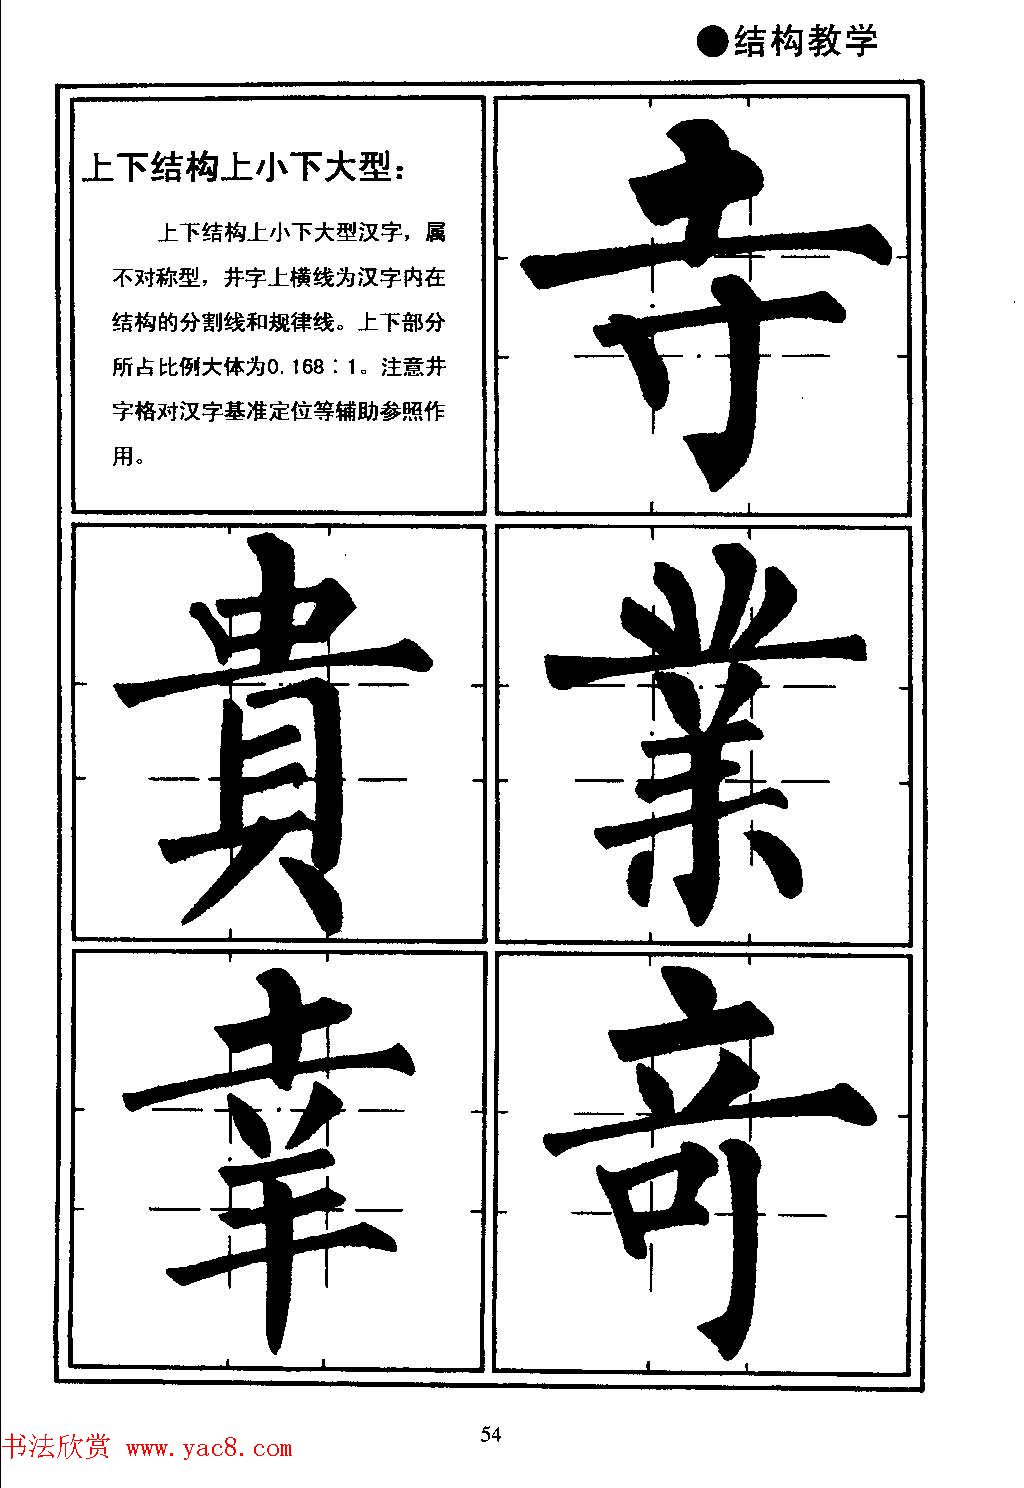 ●结构教学
上下结构上小下大型：
上下结构上小下大型汉字，属
不对称型，井字上横线为汉字内在
结构的分割线和规律线。上下部分
所占比例大体为0.168∶1。注意井
字格对汉字基准定位等辅助参照作
用。
寺
貴
業
幸
竒
54
书法欣赏 www.yac8.com